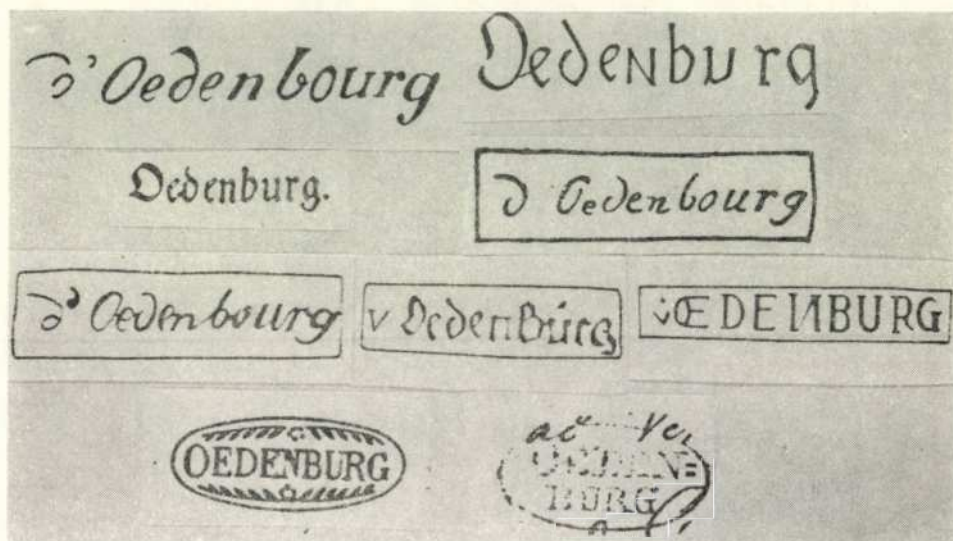 d'Oedenbourg
OedeNburg
Oedenburg.
d Oedenbourg
d'Oedenbourg
v OedenBurg
v: ŒDENBURG
OEDENBURG
OEDEN=
BURG